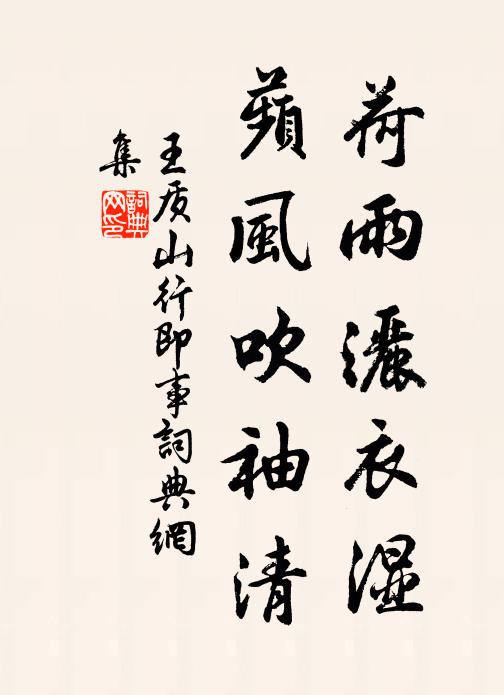 荷雨灑衣濕
蘋風吹袖清
王质山行即事詞典網
集
詞典
网印